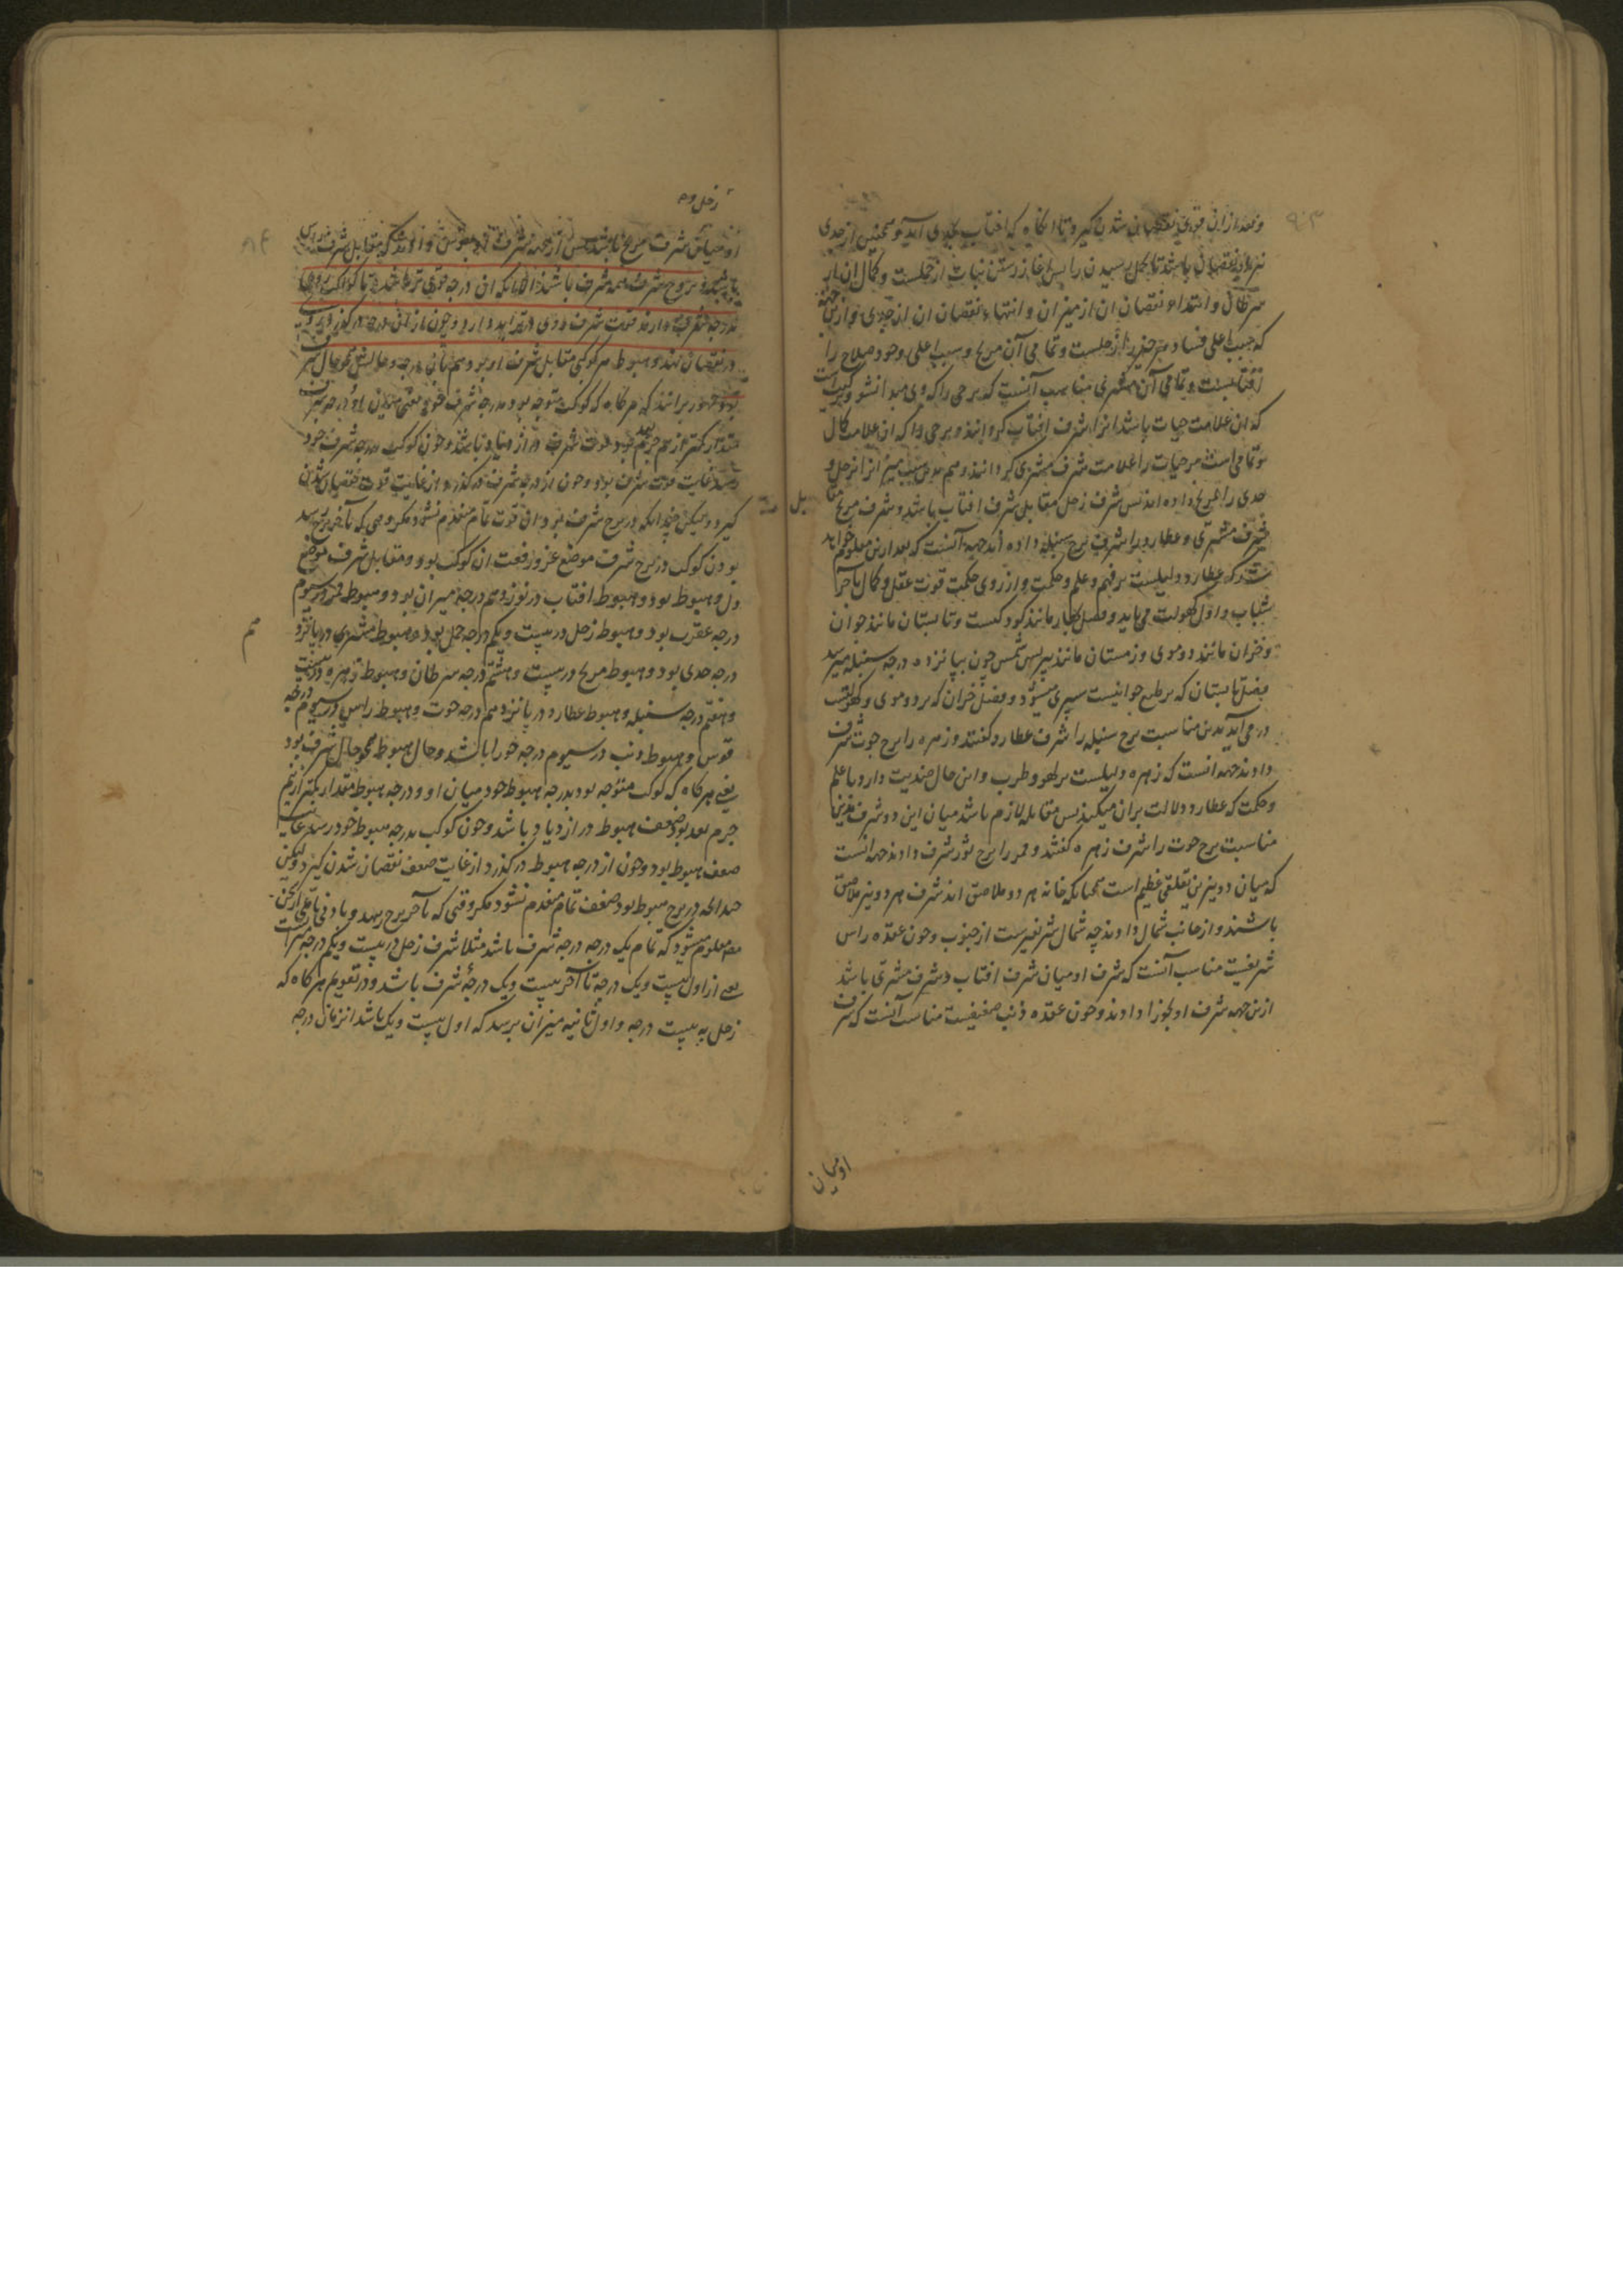 وبعد ازان قوی نقصان شدن کیرد تا انکاه که افتاب بجدی آید و همچنین از جدی
نیز در نقصان باشد تا بحمل رسیدن را پس اغاز رستن نبات از حملست و کمال ان از
سرطان و ابتداء نقصان ان از میزان و انتهاء نقصان ان از جدی و ازین جهة
که سبب اعلی فساد هر چیز زحلست و تمامی آن مریخ و سبب اعلی وجود صلاح را
افتابست و تمامی آن مشتری مناسب آنست که برجی را که وی مبدا نشو
که ان علامت حیات باشد انرا شرف افتاب کردانند و برجی را که ان علامت کمال
و تمامی است مر حیات را علامت شرف مشتری کردانند و هم بدین سبب میزانرا بزحل و
جدی را بمریخ داده اند پس شرف زحل مقابل شرف افتاب باشد و شرف مریخ مقا بل
شرف مشتری و عطارد را شرف برج سنبله داده اند جهة آنست که بعد ازین معلوم خواهد
شد که عطارد دلیلست بر فهم و علم و حکمت و از روی حکمت قوت عقل و کمال باخر
شباب و اول کهولت می باید و فصل بهار مانند کودکست و تابستان مانند جوان
و خزان مانند دو موی و زمستان مانند پیر پس شمس چون بپانزده درجه سنبله میرسد
فصل تابستان که بر طبع جوانیست سپری میشود و فصل خزان که بر دو موی و کهولتست
در می آید بدین مناسبت برج سنبله را شرف عطارد کفتند و زهره را برج حوت شرف
دادند جهة انست که زهره دلیلست بر لهو و طرب و این حال ضدیت دارد با علم
و حکمت که عطارد دلالت بران میکند پس مقابله لازم باشد میان این دو شرف بدین
مناسبت برج حوت را شرف زهره کفتند و قمر را برج ثور شرف دادند جهة انست
که میان دو نیرین تعلقی عظیم است همچنانکه خانه هر دو ملاصق اند شرف هر دو نیز ملاصق
باشند و از جانب شمال دادند چه شمال شریفترست از جنوب و چون عقده راس
شریفست مناسب آنست که شرف او میان شرف افتاب و شرف مشتری باشد
ازین جهه شرف او بجوزا دادند و چون عقده ذنب ضعیفست مناسب آنست که شرف
او میان
زحل و
او میان شرف مریخ باشد پس ازین جهة شرف او بقوس دادند که مقابل شرف راس
بروج شرف همه شرف باشند الا انکه ان درجه قوی تر باشد تا کوکب روی
بدرجه شرف دارد قوت شرف روی در تزاید دارد و چون ازان درجه درکذرد روی
در نقصان نهد و هبوط هر کوکبی مقابل شرف او بود هم بدان درجه و حالش همچو حال شرف
بود و جمهور برانند که هر کاه که کوکب متوجه بود بدرجه شرف خود یعنی میان او و درجه شرف
مقدار کمتر از نیم جرم بعد بود قوت شرف در ازدیاد باشد و چون کوکب بدرجه شرف خود
رسد غایت قوت شرف بود و چون از درجه شرف درکذرد از غایت قوت نقصان شدن
کیرد و لیکن چندانکه در برج شرف بود ان قوت تمام منعدم نشود مکر وقتی که بآخر برج رسد
بودن کوکب در برج شرف موضع عز و رفعت ان کوکب بود و مقابل شرف موضع
ذل و هبوط بود و هبوط افتاب در نوزدهم درجه میزان بود و هبوط قمر در سیوم
درجه عقرب بود و هبوط زحل در بیست و یکم درجه حمل بود و هبوط مشتری در پانزده
درجه جدی بود و هبوط مریخ در بیست و هشتم درجه سرطان و هبوط زهره در بیست
و هفتم درجه سنبله و هبوط عطارد در پانزدهم درجه حوت و هبوط راس در سیوم درجه
قوس و هبوط ذنب در سیوم درجه جوزا باشد و حال هبوط همچو حال شرف بود
یعنی هر کاه که کوکب متوجه بود بدرجه هبوط خود میان او و درجه هبوط مقدار کمتر از نیم
جرم بعد بود ضعف هبوط در ازدیاد باشد و چون کوکب بدرجه هبوط خود رسد غایت
ضعف هبوط بود و چون از درجه هبوط درکذرد از غایت ضعف نقصان شدن کیرد ولیکن
چندانکه در برج هبوط بود ضعف تمام منعدم نشود مکر وقتی که بآخر برج رسد و بادنی تاملی ازین
معلوم میشود که تمام یک درجه درجه شرف باشد مثلا شرف زحل در بیست و یکم درجه میزانست
یعنی از اول بیست ویک درجه تا آخر بیست ویک درجۀ شرف باشد و در تقویم هر کاه که
زحل به بیست درجه و اول ثانیه میزان برسد که اول بیست ویک باشد انزمان درجه